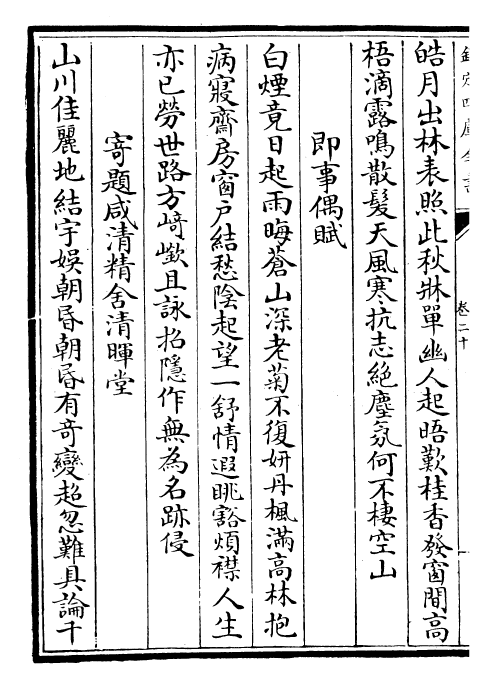 欽定四庫全書
卷二十
皓月出林表照此秋牀單幽人起晤歎桂香發窗間高
梧滴露鳴散髮天風寒抗志絶塵氛何不棲空山
即事偶賦
白煙竟日起雨晦蒼山深老菊不復妍丹楓滿高林抱
病寢齋房窗户結愁陰起望一舒情遐眺豁煩襟人生
亦已勞世路方﨑嶔且詠招隱作無為名跡侵
寄題咸清精舍清暉堂
山川佳麗地結宇娱朝昏朝昏有奇變超忽難具論千